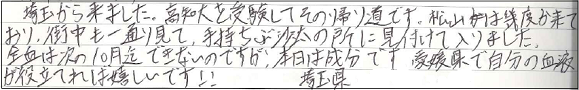 埼玉から来ました。高知大を受験してその帰り道です。松山城は幾度か来て
おり、街中も一通り見て、手持ちぶ沙太の所に見付けて入りました。
全血は次の10月迄できないのですが、本日は成分です 愛媛県で自分の血液
が役立てれば嬉しいです!! 埼玉県